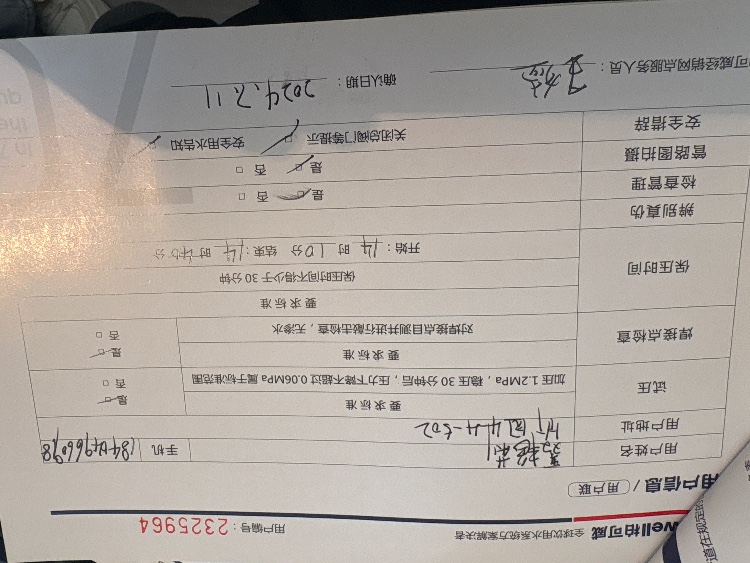 well柏可威 全球饮用水系统方案解决者
用户编号：2325964
用户信息 /（用户联）
用户姓名 手机
用户地址 4-4-502
试压 要求标准 是
加压1.2MPa，稳压30分钟后，压力下降不超0.06MPa属于标准范围 否
焊接点检查 要求标准 是
对焊接点目测并进行敲击检查，无渗水 否
保压时间 要求标准
保压时间不得小于30分钟
开始：14时10分 结束：14时40分
辨别真伪
检查管理 是 否
管路图拍摄 是 否
安全措辞 关闭总阀门等提示 安全用水告知
可威经销网点服务人员： 确认日期：2024.7.11
道在规定的